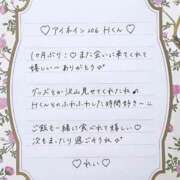 ♡アイネイン206 Hくん♡
1ヶ月ぶり♡また会いに来てくれて
嬉しい〜ありがとう♡
グッズとか沢山見せてくれたね
Hくんとのふわふわした時間好き〜
ご飯も一緒に食べれて嬉しい♡
次もまったり過ごそうね♡
♡れい♡